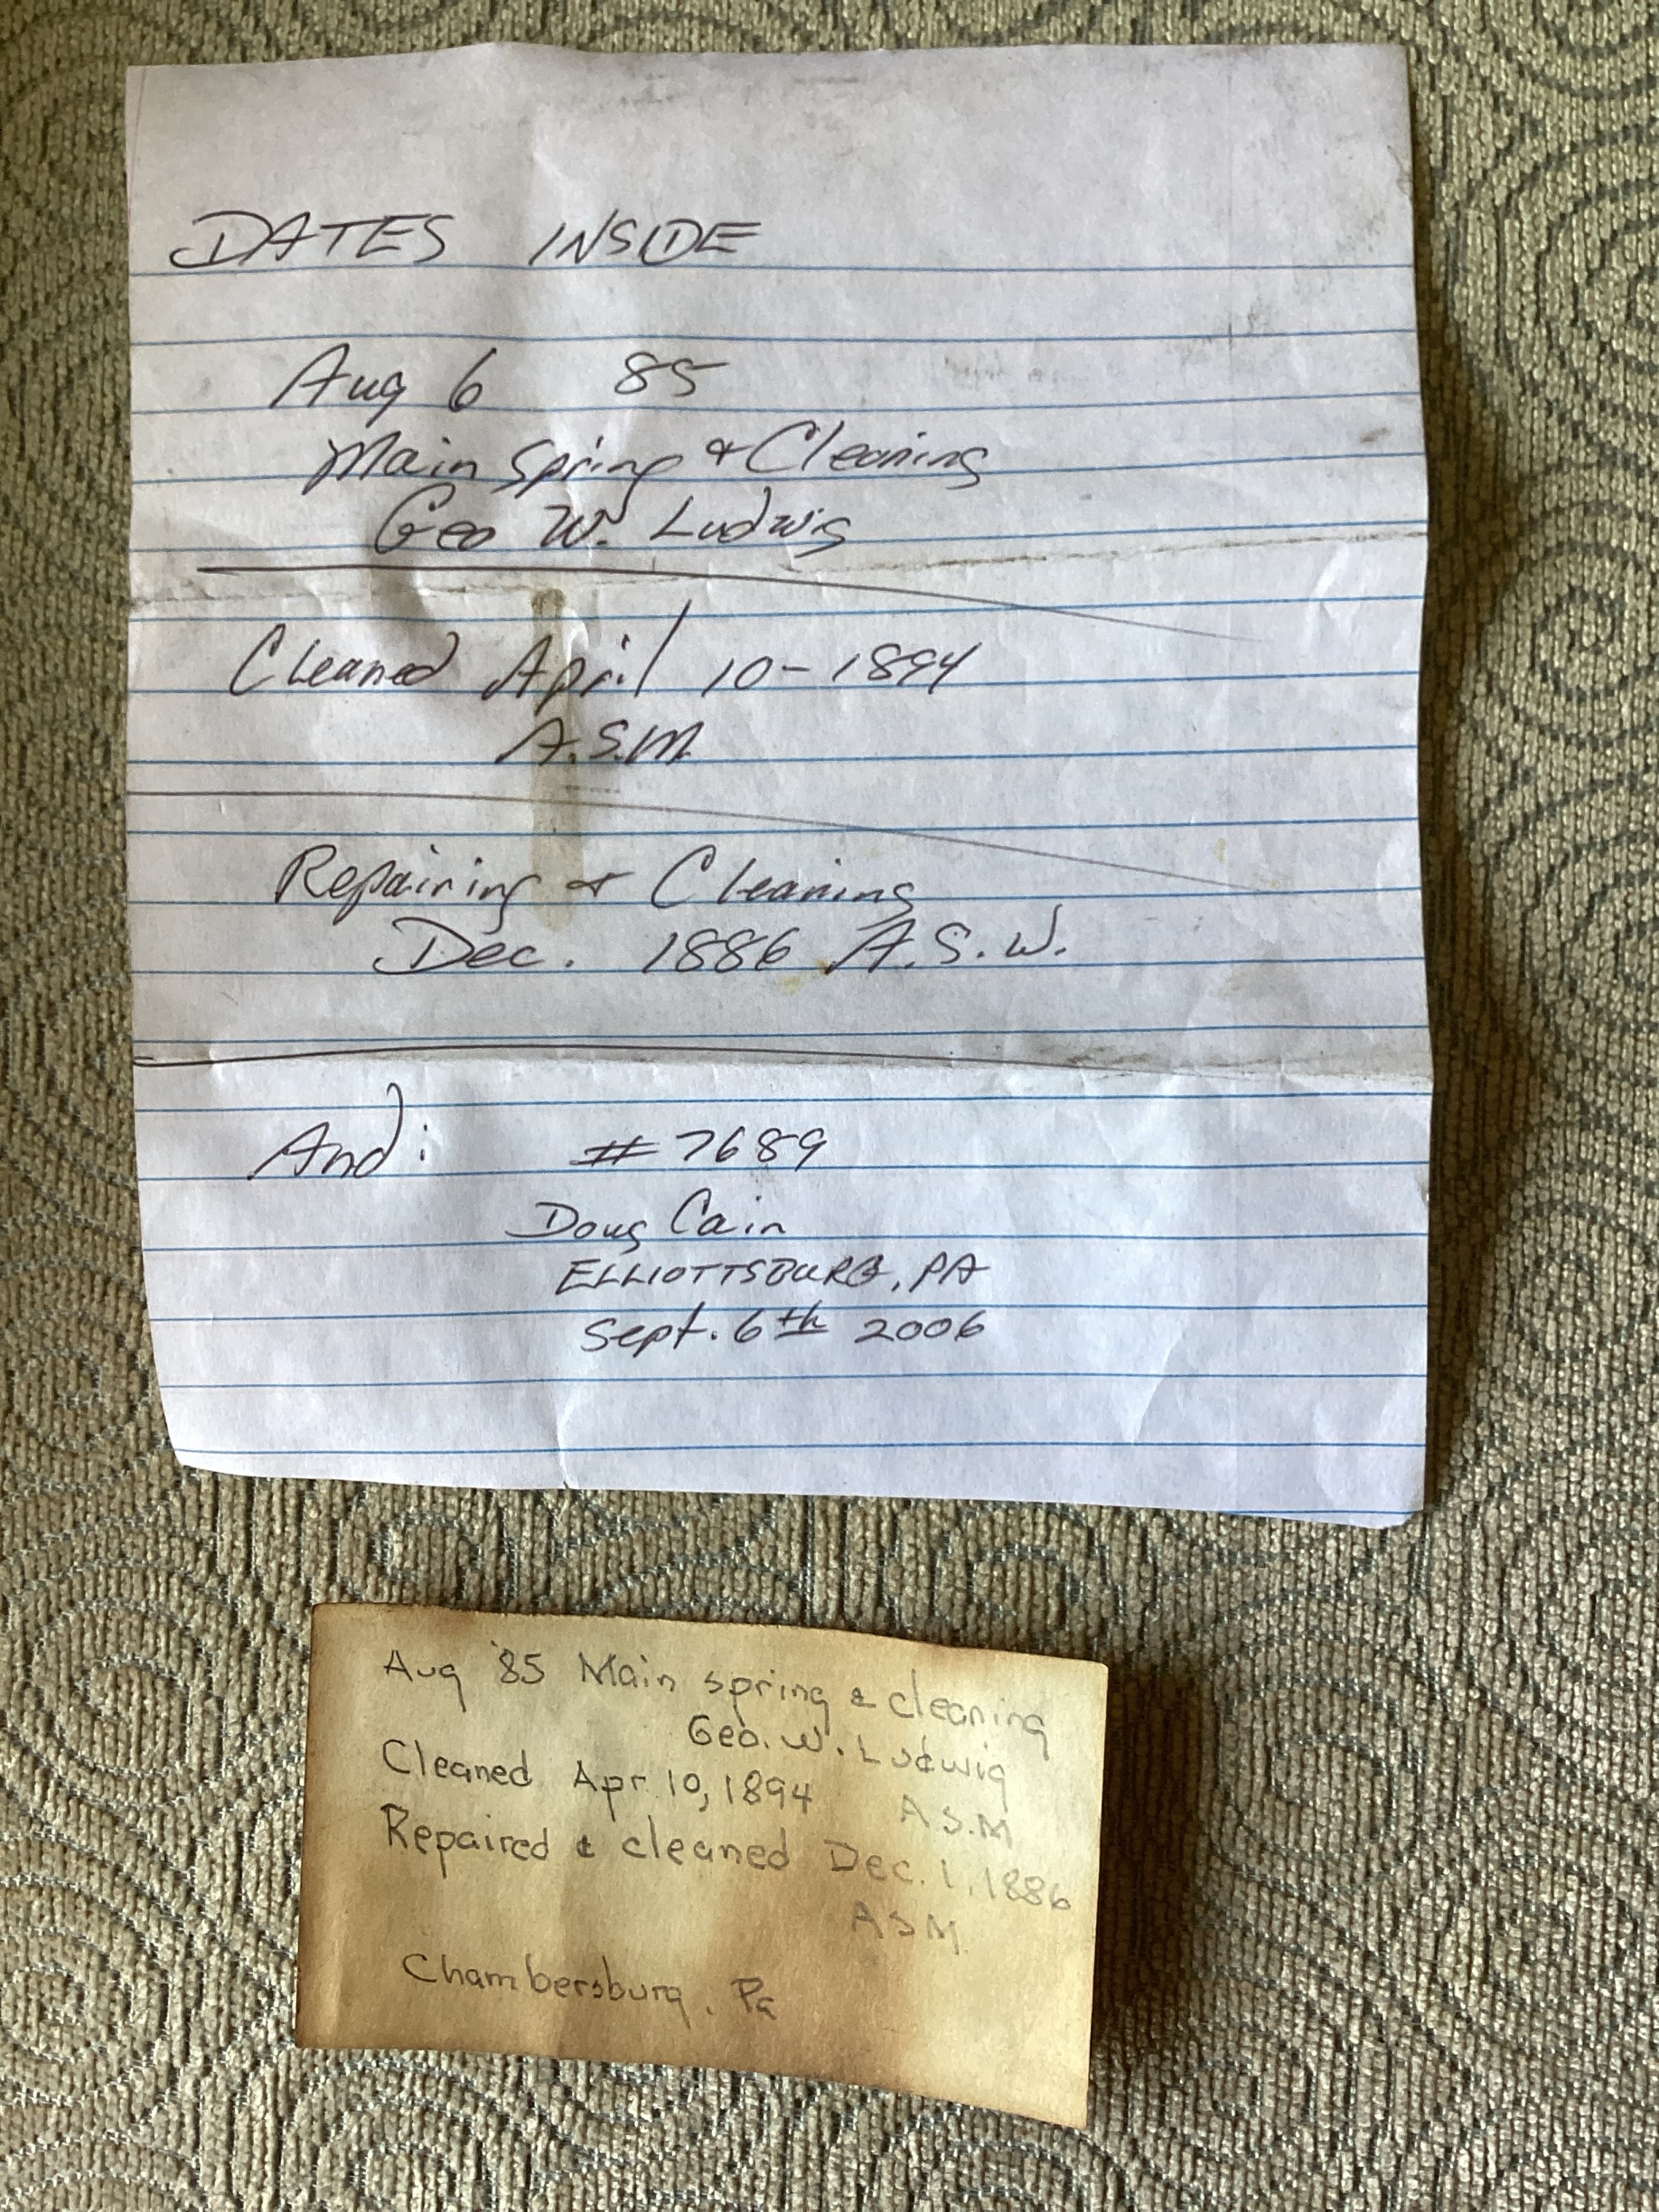 DATES INSIDE
Aug 6 85
Main Spring & Cleaning
Geo W. Ludwig
Cleaned April 10-1894
A.S.M.
Repairing & Cleaning
Dec. 1886 A.S.W.
And: #7689
Doug Cain
ELLIOTTSBURG, PA
Sept. 6th 2006
Aug '85 Main spring & cleaning
Geo. W. Ludwig
Cleaned Apr. 10, 1894 A S.M
Repaired & cleaned Dec. 1, 1886
A S M.
Chambersburg, Pa